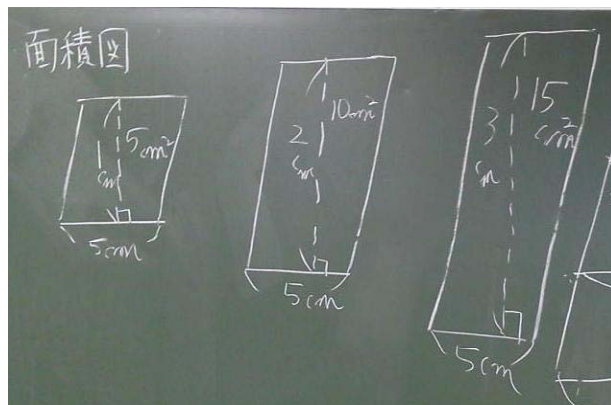 面積図
1cm
5cm²
5cm
2cm
10cm²
5cm
3cm
15cm²
5cm